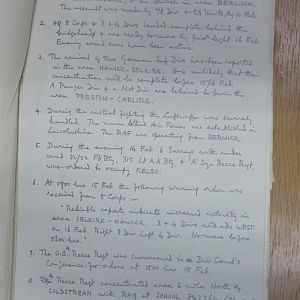 in area BERWICK.
The assault was made by 78 Div
by 10 Feb
2. HQ 5 Corps & 3 & 4 Divs landed complete behind the
bridgehead & are ready to move by first light 16 Feb
Enemy aircraft have been active.
3. The arrival of two German Inf Divs has been reported
in the area HAWICK-SELKIRK. It is unlikely that their
concentration will be complete before 15/16 Feb.
A Panzer Div & a Mot Div are believed to be in the
area PRESTON - CARLISLE.
4. During the initial fighting the Luftwaffe was severely
handled. The main Allied Air Forces are established in
Lincolnshire. The RAF are operating from BERWICK.
5. During the evening 14 Feb 6 Surreys with under
comd Fd Bty, 315 Lt AA Bty & 'A' Sqn Recce Regt
was ordered to occupy KELSO.
6. At 0900 hrs 15 Feb the following warning order was
received from 5 Corps :-
"Reliable reports indicate increased activity in
area SELKIRK - HAWICK. 3 & 4 Divs will adv WEST
on 16 Feb. Right 3 Div left 4 Div. No move before
0800 hrs."
7. The O.C. Recce Regt was summoned to Div Comd's
Conference for orders at 1500 hrs 15 Feb.
8. Recce Regt concentrated area 2 miles North of
COLDSTREAM with RHQ at SCHOOL